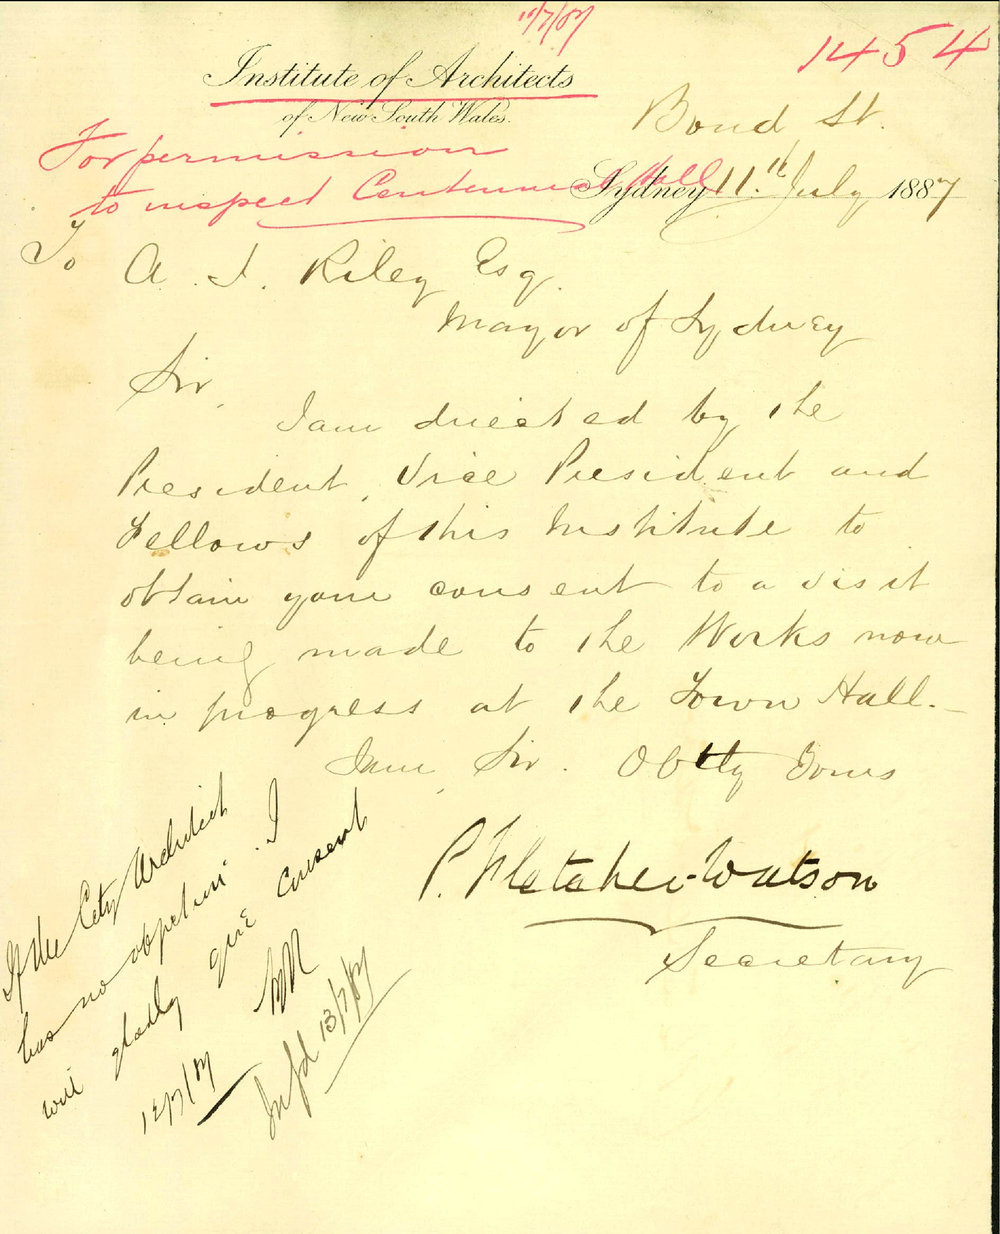 11/7/87
1454
Institute of Architects
of New South Wales.
Bond St.
For permission
to inspect Centennial Hall
Sydney 11th July 1887
To A. J. Riley Esq.
Mayor of Sydney
Sir,
I am directed by the
President, Vice President and
Fellows of this Institute to
obtain your consent to a visit
being made to the Works now
in progress at the Town Hall.-
I am, Sir. Obtly Yours
P. Fletcher-Watson
Secretary
If the City Architect
has no objection. I
will gladly give consent
12/7/87
Infd 13/7/87